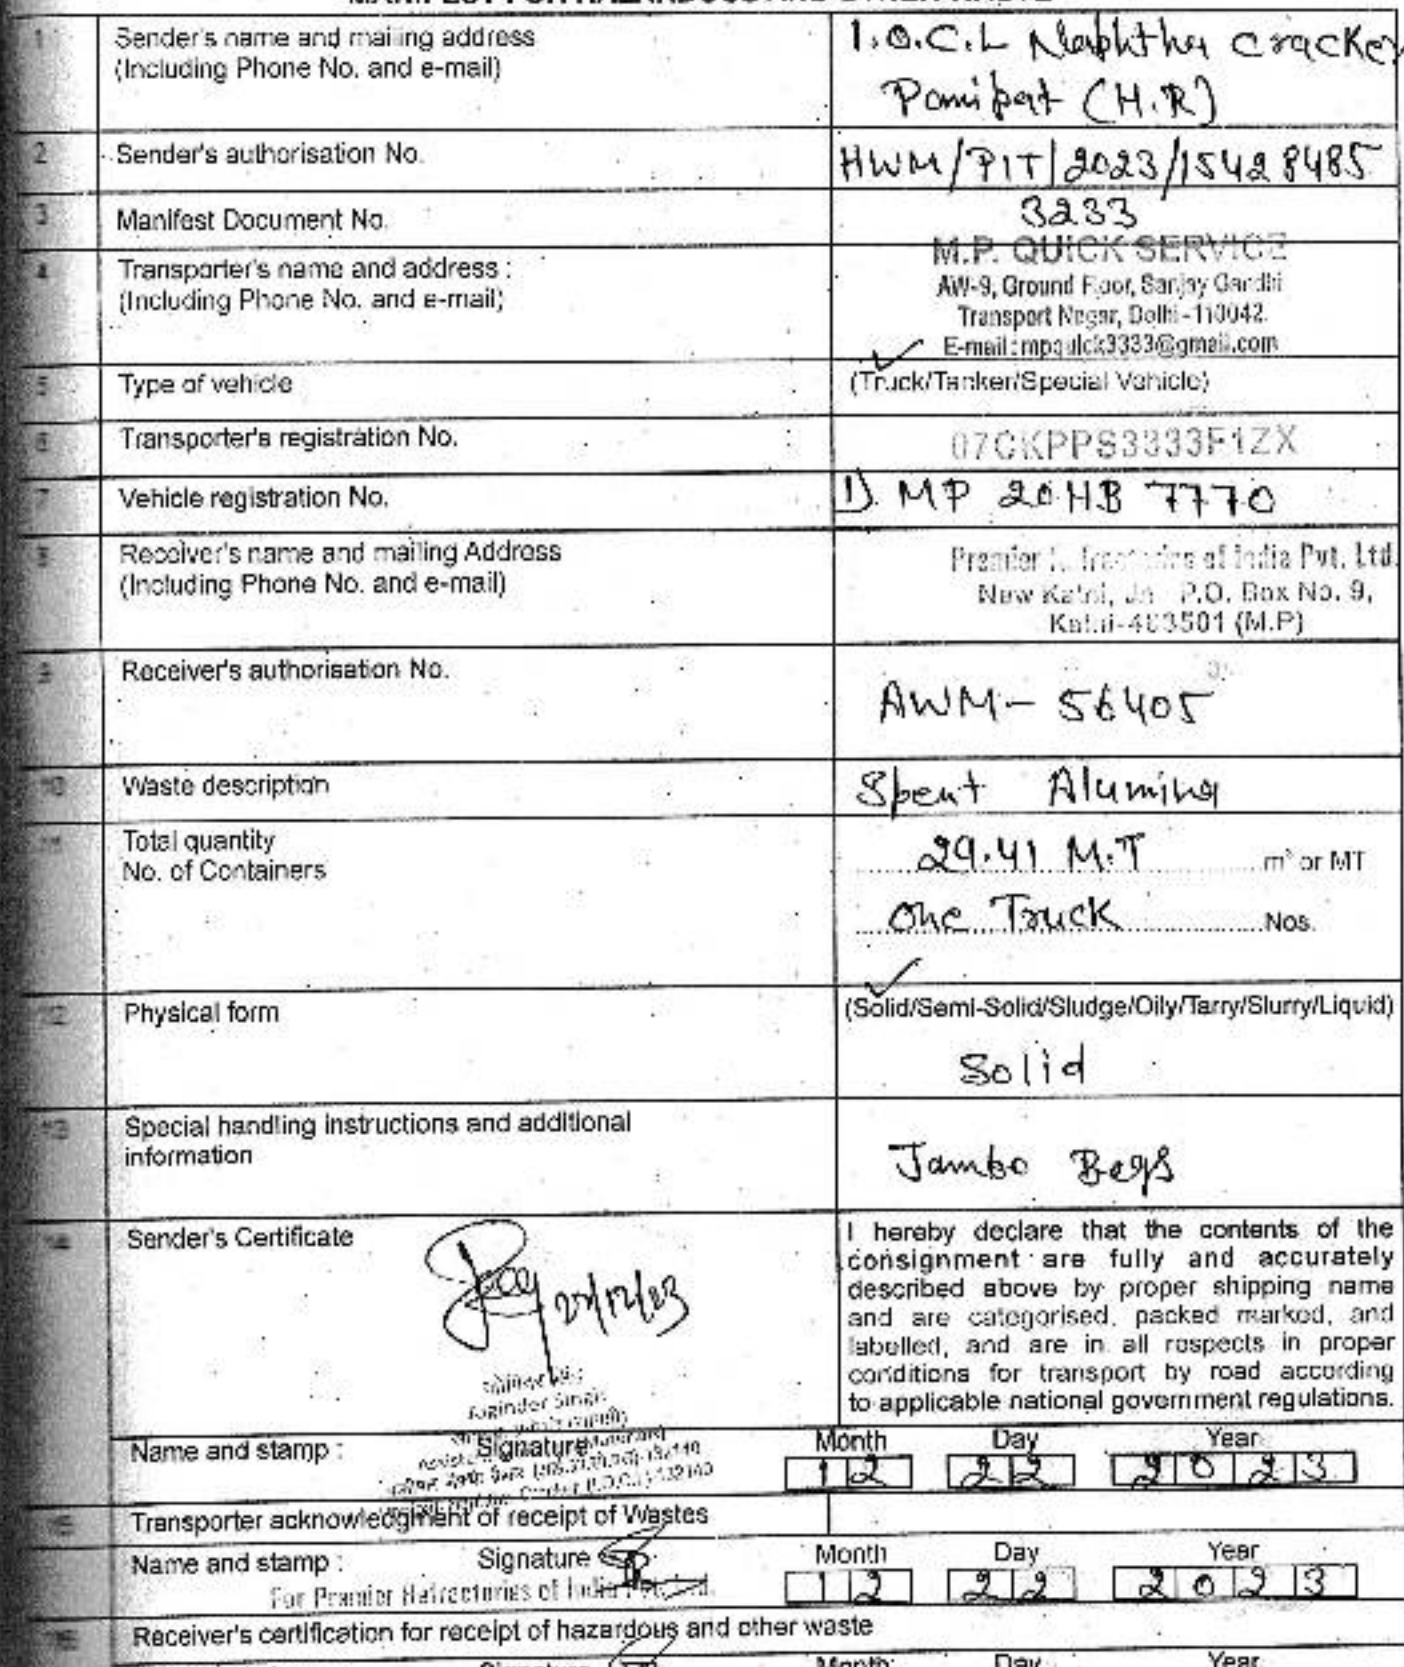 1 Sender's name and mailing address
(Including Phone No. and e-mail)
I.O.C.L Naphtha cracker
Panipat (H.R)
2 Sender's authorisation No.
HWM/PIT/2023/15428485
3 Manifest Document No.
3233
4 Transporter's name and address :
(Including Phone No. and e-mail)
M.P. QUICK SERVICE
AW-9, Ground Floor, Sanjay Gandhi
Transport Nagar, Delhi-110042.
E-mail : mpquick3333@gmail.com
5 Type of vehicle
(Truck/Tanker/Special Vehicle)
6 Transporter's registration No.
07CKPPS3333F1ZX
7 Vehicle registration No.
1). MP 20 HB 7770
8 Receiver's name and mailing Address
(Including Phone No. and e-mail)
Premier Refractories of India Pvt. Ltd.
New Katni, Jn P.O. Box No. 9,
Katni-483501 (M.P)
9 Receiver's authorisation No.
AWM - 56405
10 Waste description
Spent Alumina
11 Total quantity
No. of Containers
29.41 M.T m³ or MT
One Truck Nos.
12 Physical form
(Solid/Semi-Solid/Sludge/Oily/Tarry/Slurry/Liquid)
Solid
13 Special handling instructions and additional
information
Jambo Begs
14 Sender's Certificate
I hereby declare that the contents of the
consignment are fully and accurately
described above by proper shipping name
and are categorised, packed marked, and
labelled, and are in all respects in proper
conditions for transport by road according
to applicable national government regulations.
Joginder Singh
Name and stamp : Signature
Month Day Year
12 22 2023
15 Transporter acknowledgment of receipt of Wastes
Name and stamp : Signature
For Premier Refractories of India Pvt. Ltd.
Month Day Year
12 22 2023
16 Receiver's certification for receipt of hazardous and other waste
Signature Month Day Year